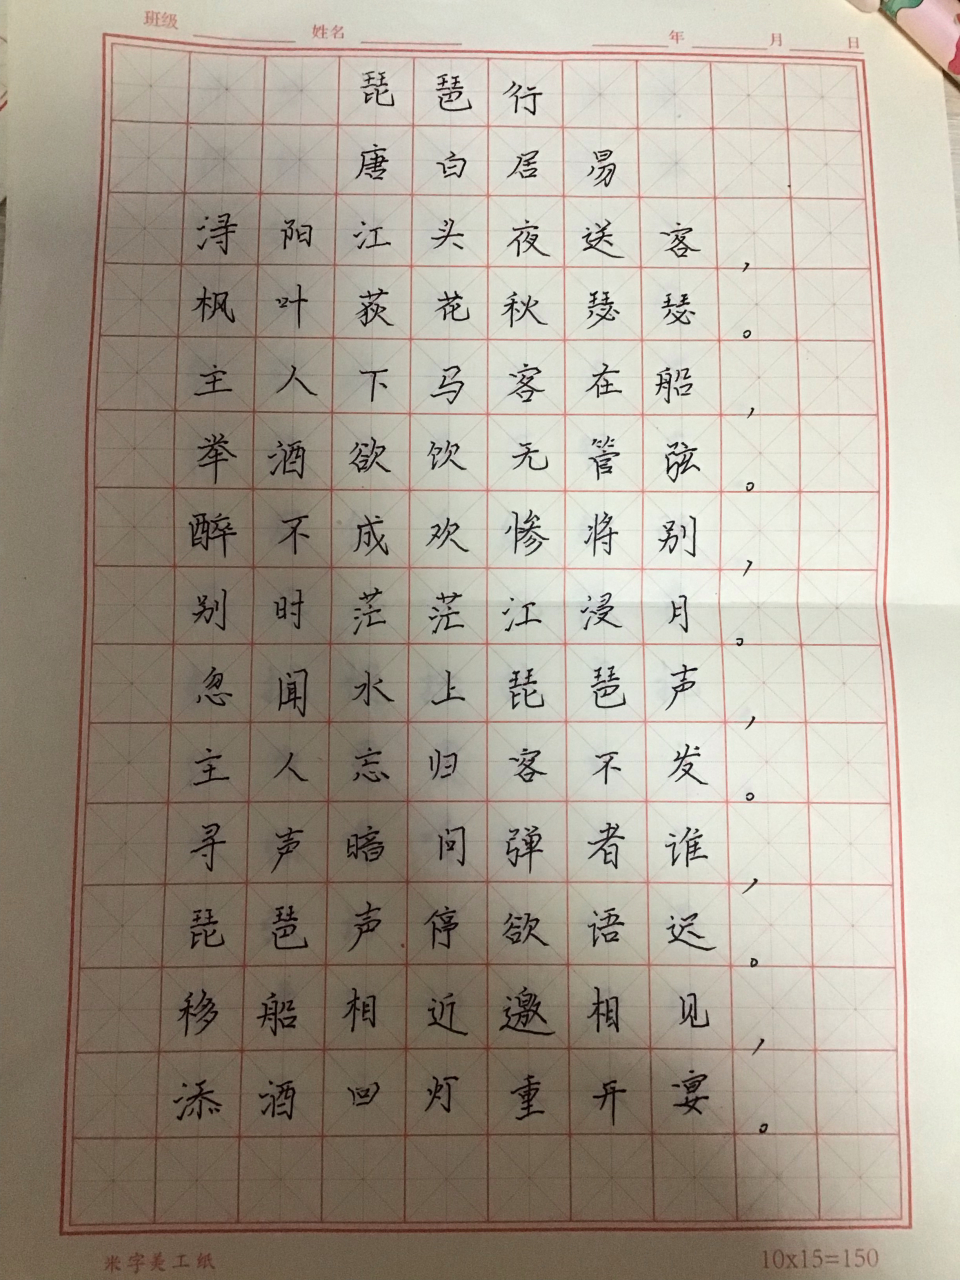 班级 姓名 年 月 日
琵琶行
唐白居易
浔阳江头夜送客，
枫叶荻花秋瑟瑟。
主人下马客在船，
举酒欲饮无管弦。
醉不成欢惨将别，
别时茫茫江浸月。
忽闻水上琵琶声，
主人忘归客不发。
寻声暗问弹者谁，
琵琶声停欲语迟。
移船相近邀相见，
添酒回灯重开宴。
米字美工纸 10x15=150